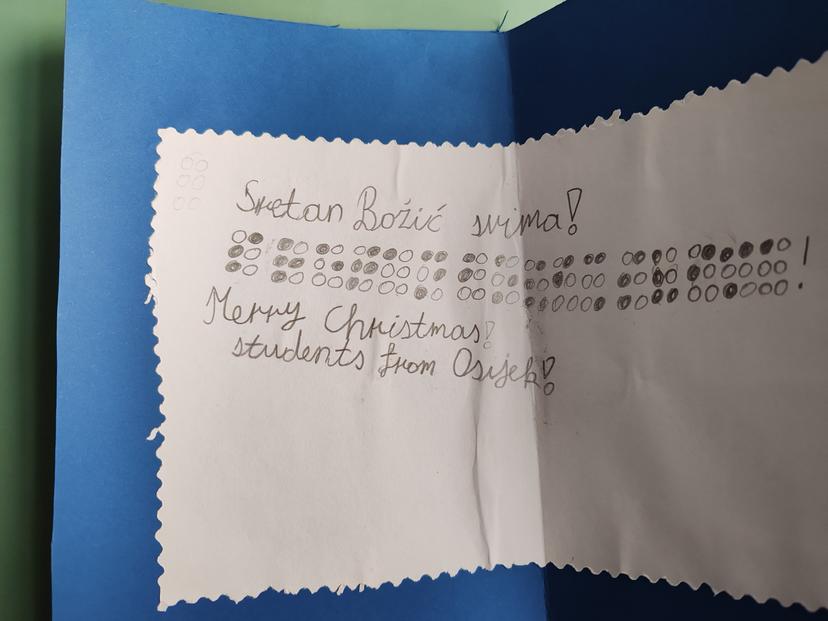 Sretan Božić svima!
Merry Christmas!
students from Osijek!